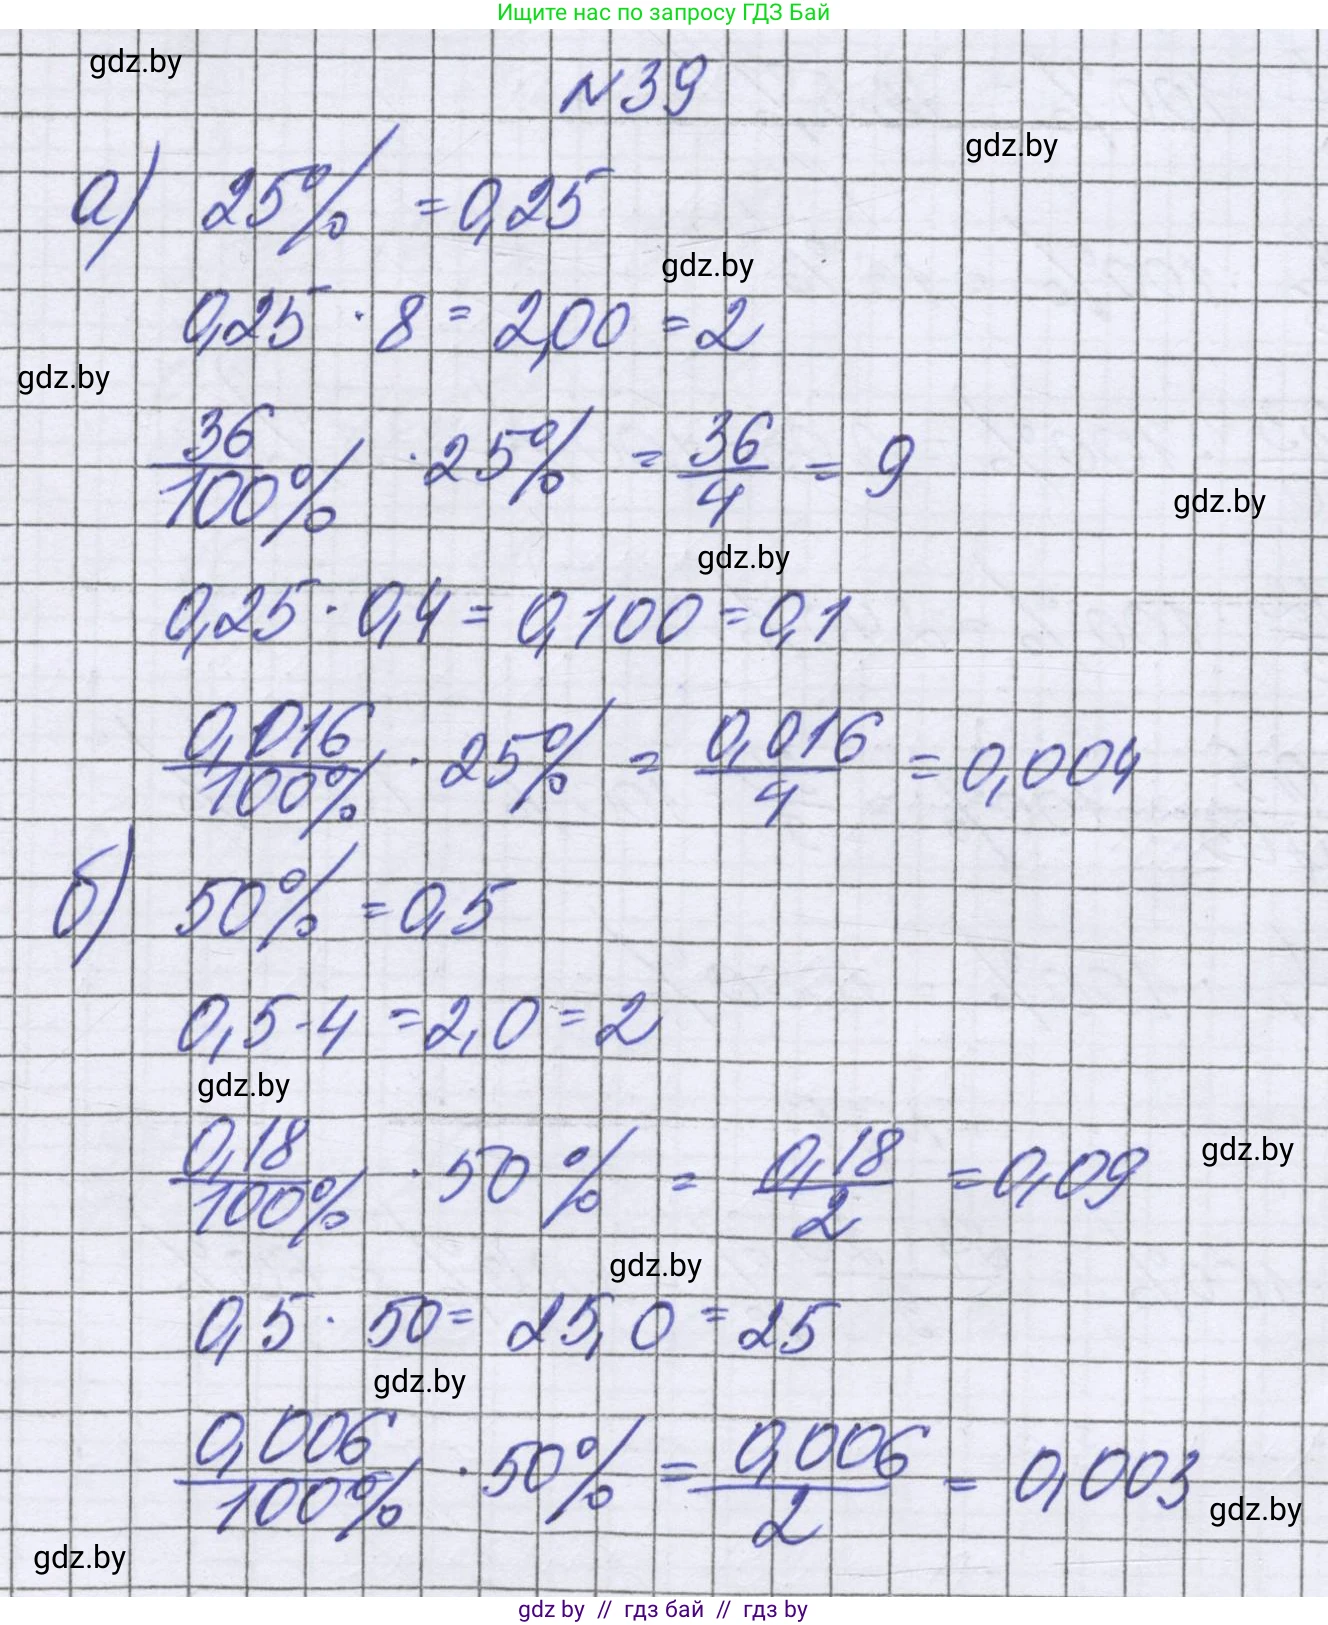 Ищите нас по запросу ГДЗ Бай
gdz.by
№39
gdz.by
а) 25% = 0,25
gdz.by
0,25 · 8 = 2,00 = 2
gdz.by
36/100% · 25% = 36/4 = 9
gdz.by
gdz.by
0,25 · 0,4 = 0,100 = 0,1
0,016/100% · 25% = 0,016/4 = 0,004
б) 50% = 0,5
0,5 · 4 = 2,0 = 2
gdz.by
0,18/100% · 50% = 0,18/2 = 0,09
gdz.by
gdz.by
0,5 · 50 = 25,0 = 25
gdz.by
0,006/100% · 50% = 0,006/2 = 0,003
gdz.by
gdz.by
gdz by // гдз бай // gdz by